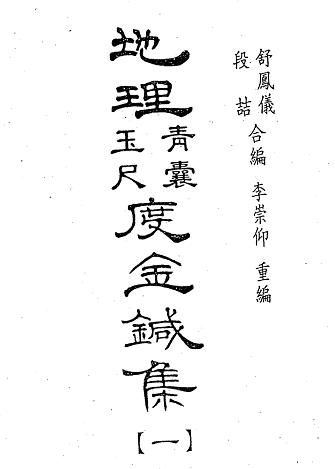 舒鳳儀
段喆 合編 李崇仰 重編
地理
青囊
玉尺
度金鍼集
【一】